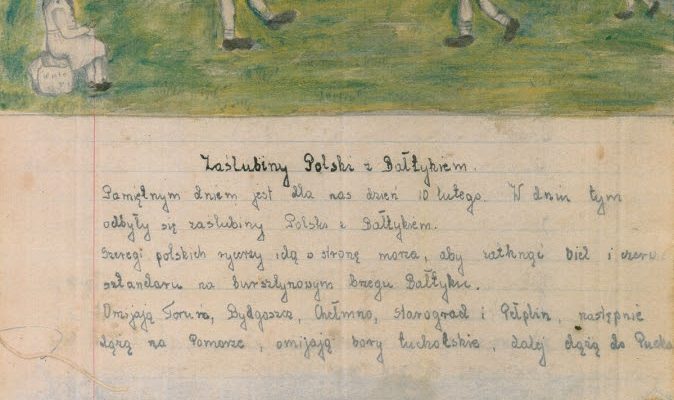 Zaślubiny Polski z Bałtykiem.
Pamiętnym dniem jest dla nas dzień 10 lutego. W dniu tym
odbyły się zaślubiny Polski z Bałtykiem.
Szeregi polskich rycerzy idą w stronę morza, aby zatknąć biel i czerw
sztandaru na bursztynowym brzegu Bałtyku.
Omijają Toruń, Bydgoszcz, Chełmno, Starogrod i Pelplin, następnie
dążą na Pomorze, omijają bory tucholskie, dalej dążą do Pucka